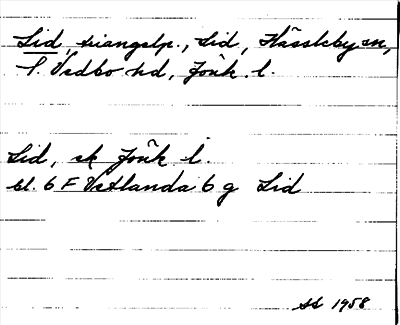 Lid, triangelp., Lid, Hässleby sn,
S. Vedbo hd, Jönk. l.
Lid, ek Jönk l.
bl. 6 F Vetlanda 6 g Lid
SS 1958